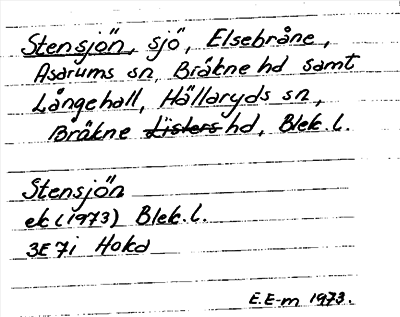 Stensjön, sjö, Elsebråne,
Asarums sn, Bräkne hd samt
Långehall, Hällaryds sn,
Bräkne Listers hd, Blek. l.
Stensjön
ek (1973) Blek. l.
3E 7i Hokd
E.E-m 1973.